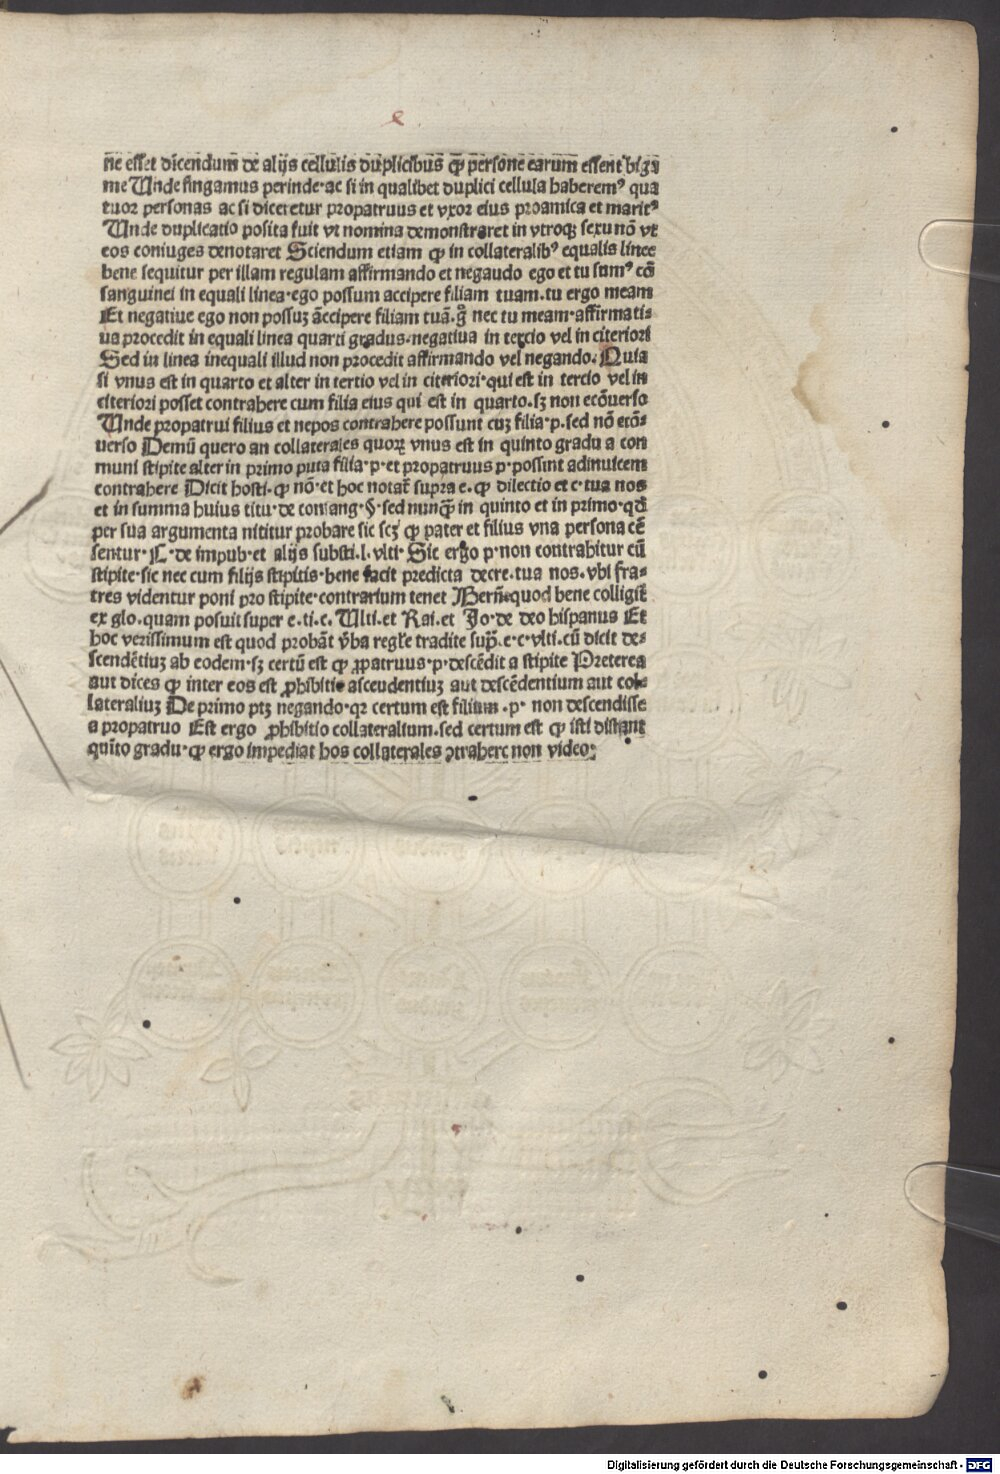 ne esset dicendum de alijs cellulis duplicibus qꝫ persone earum essent biga
me Unde fingamus perinde·ac si in qualibet duplici cellula haberemꝰ qua
tuor personas ac si diceretur propatruus et vxor eius proamica et maritꝰ
Unde duplicatio posita fuit vt nomina demonstraret in vtroqꝫ sexu nō vt
eos coniuges denotaret Sciendum etiam ꝙ in collateralibꝰ equalis linee
bene sequitur per illam regulam affirmando et negaudo ego et tu sumꝰ cō
sanguinei in equali linea·ego possum accipere filiam tuam.tu ergo meam
Et negatiue ego non possuꝫ āccipere filiam tuā.g̊ nec tu meam·affirmati⸗
ua procedit in equali linea quarti gradus·negatiua in tercio vel in citeriori
Sed in linea inequali illud non procedit affirmando vel negando. Quia
si vnus est in quarto et alter in tertio vel in citeriori·qui est in tercio vel in
citeriori posset contrahere cum filia eius qui est in quarto.sꝫ non ecōuerso
Unde propatrui filius et nepos contrahere possunt cuꝫ filia·p.sed nō ecō⸗
uerso Demū quero an collaterales quoꝝ vnus est in quinto gradu a com
muni stipite alter in primo puta filia·p·et propatruus p·possint adinuicem
contrahere Dicit hosti.ꝙ nō·et hoc notat̄ supra e.ꝙ dilectio et c·tua nos
et in summa huius titu·de consang·§·sed nunꝙ̄ in quinto et in primo·qd̄
per sua argumenta nititur probare sic scꝫ ꝙ pater et filius vna persona cē
sentur·C·de impub·et alijs substi.l.vlti·Sic ergo p·non contrahitur cū
stipite·sic nec cum filijs stipitis·bene facit predicta decre.tua nos.vbi fra⸗
tres videntur poni pro stipite·contrarium tenet Bern̄·quod bene colligit̄
ex glo.quam posuit super e.ti.c. Ulti.et Rai.et Jo·de deo hispanus Et
hoc verissimum est quod probāt v̄ba regl̄e tradite sup̄.e·c·vlti.cū dicit de⸗
scendētiuꝫ ab eodem·sꝫ certū est ꝙ ꝓpatruus·p·descēdit a stipite Preterea
aut dices ꝙ inter eos est ꝓhibitio asceudentiuꝫ aut descēdentium aut col⸗
lateraliuꝫ De primo ptꝫ negando·qꝛ certum est filium .p· non descendisse
a propatruo Est ergo ꝓhibitio collateralium.sed certum est ꝙ isti distant
quīto gradu·ꝙ ergo impediat hos collaterales ꝯtrahere non video:
Digitalisierung gefördert durch die Deutsche Forschungsgemeinschaft - DFG